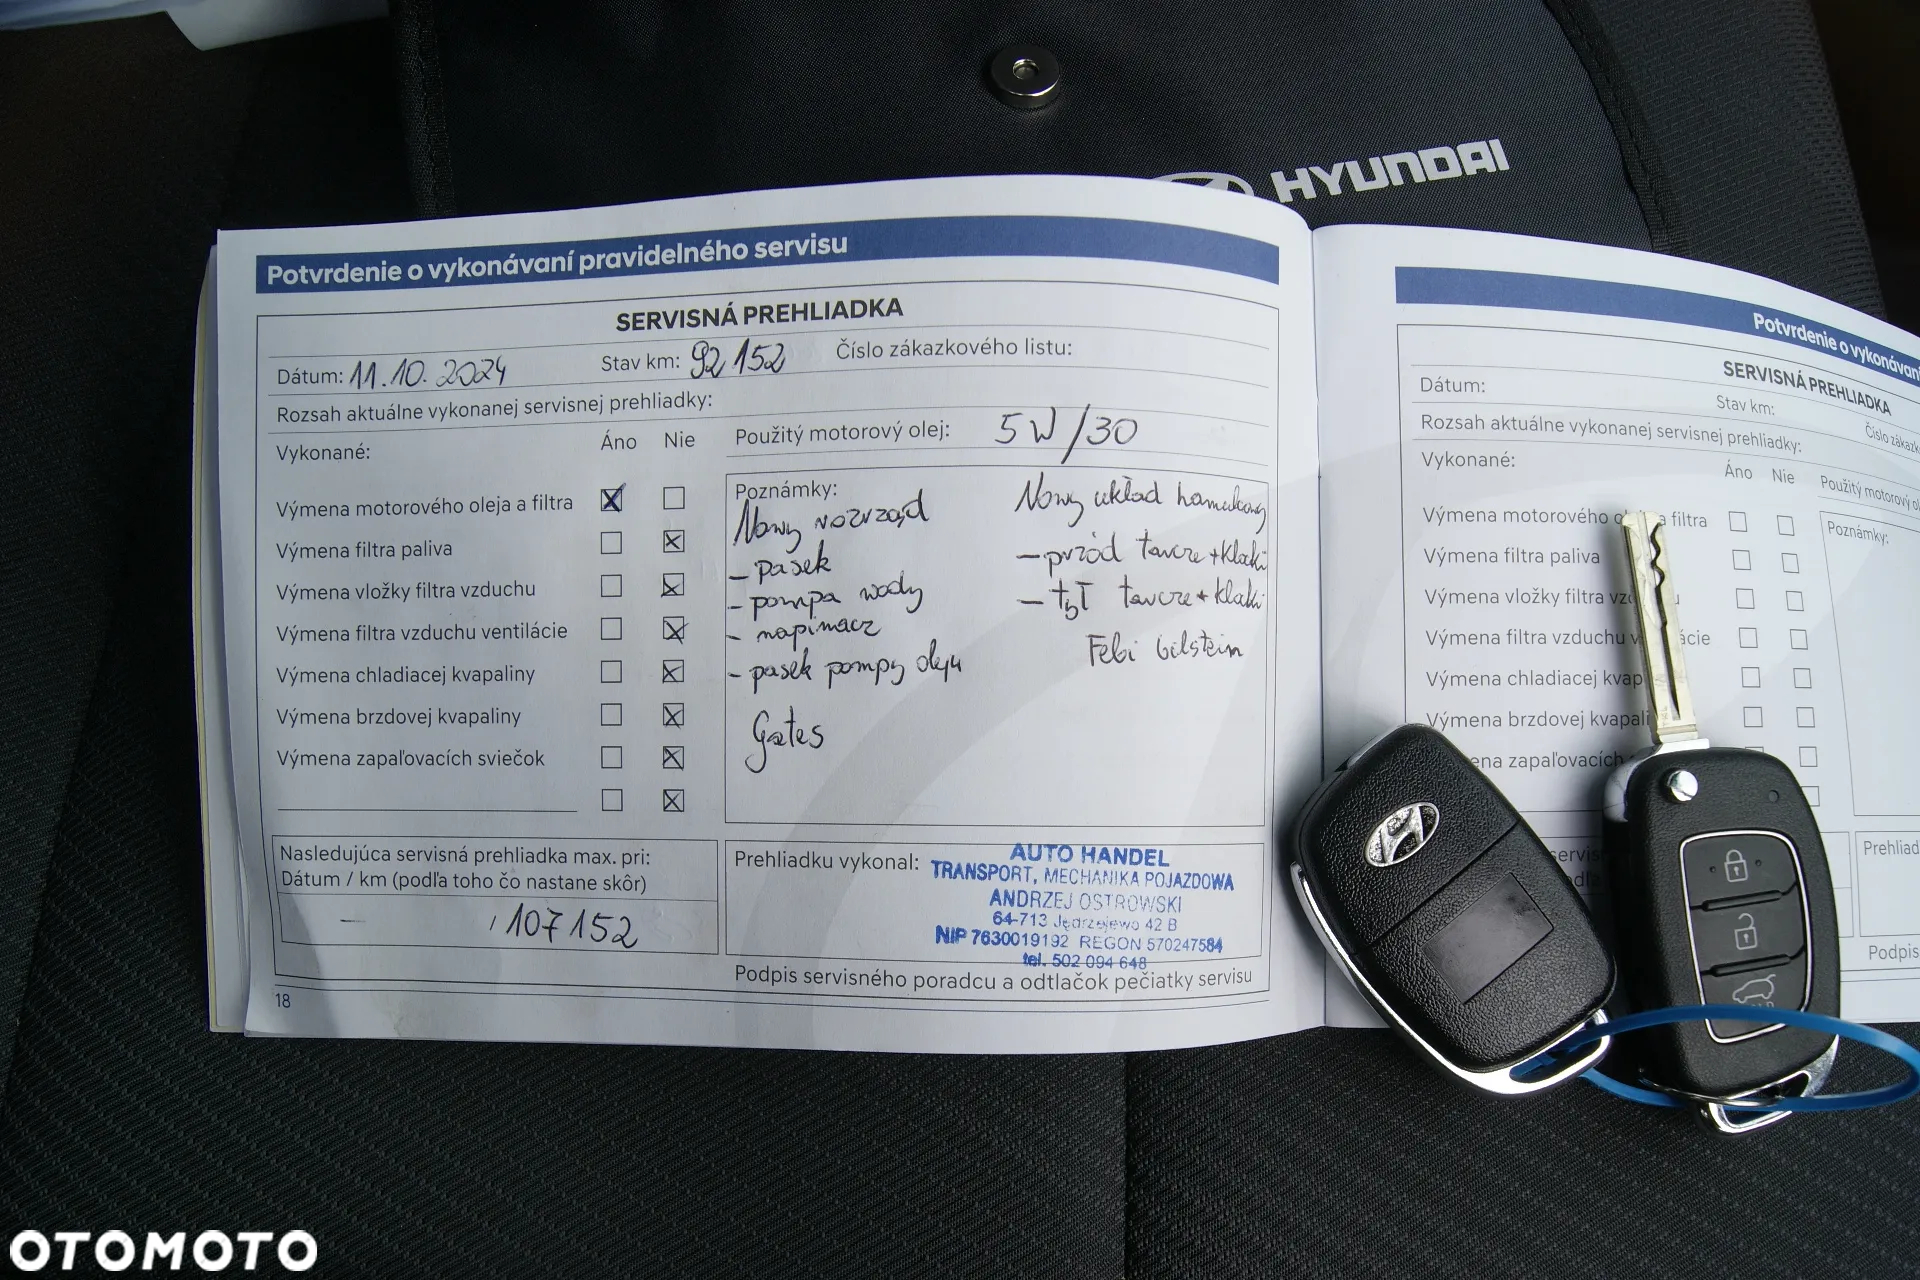 HYUNDAI
Potvrdenie o vykonávaní pravidelného servisu
SERVISNÁ PREHLIADKA
Dátum: 11.10.2024 Stav km: 92152 Číslo zákazkového listu:
Rozsah aktuálne vykonanej servisnej prehliadky:
Vykonané: Áno Nie
Použitý motorový olej: 5W/30
Výmena motorového oleja a filtra
Výmena filtra paliva
Výmena vložky filtra vzduchu
Výmena filtra vzduchu ventilácie
Výmena chladiacej kvapaliny
Výmena brzdovej kvapaliny
Výmena zapaľovacích sviečok
Poznámky:
Nowy rozrząd
- pasek
- pompa wody
- napinacz
- pasek pompy oleju
Gates
Nowy układ hamulcowy
- przód tarcze + klocki
- tył tarcze + klocki
Febi bilstein
Nasledujúca servisná prehliadka max. pri:
Dátum / km (podľa toho čo nastane skôr)
- , 107152
Prehliadku vykonal:
AUTO HANDEL
TRANSPORT, MECHANIKA POJAZDOWA
ANDRZEJ OSTROWSKI
64-713 Jędrzejewo 42 B
NIP 7630019192 REGON 570247584
tel. 502 094 648
Podpis servisného poradcu a odtlačok pečiatky servisu
18
Potvrdenie o vykonávaní
SERVISNÁ PREHLIADKA
Dátum: Stav km: Číslo
Rozsah aktuálne vykonanej servisnej prehliadky:
Vykonané: Áno Nie
Použitý motorový
Výmena motorového filtra
Výmena filtra paliva
Výmena vložky filtra
Výmena filtra vzduchu
Výmena chladiacej
Výmena brzdovej
zapaľovacích
Poznámky:
Podpis
OTOMOTO